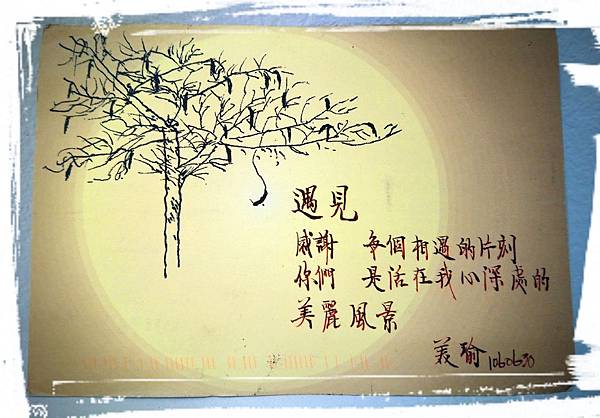 遇見
感謝 每個相遇的片刻
你們 是活在我心深處的
美麗風景
義瑜 1060630